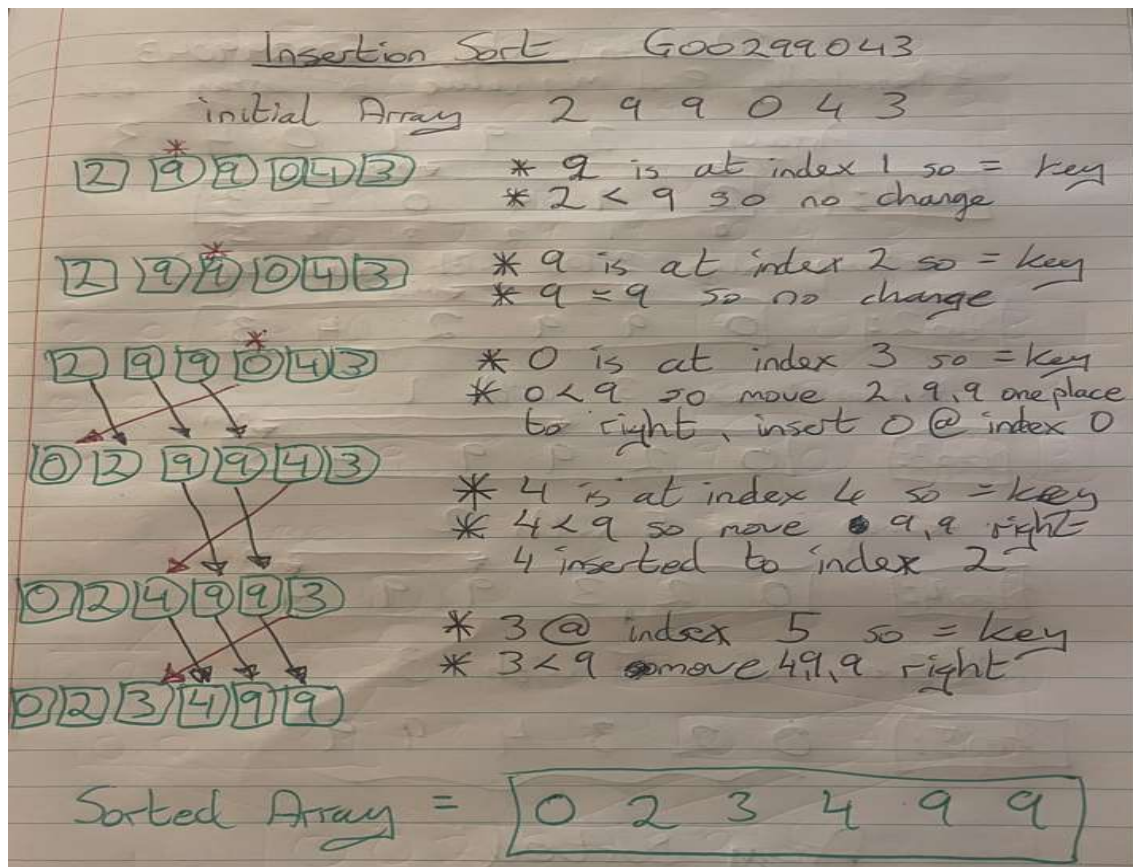 Insertion Sort G00299043
initial Array 2 9 9 0 4 3
*
2 9 9 0 4 3 * 9 is at index 1 so = key
* 2 < 9 so no change
*
2 9 9 0 4 3 * 9 is at index 2 so = key
* 9 = 9 so no change
*
2 9 9 0 4 3 * 0 is at index 3 so = key
* 0 < 9 so move 2, 9, 9 one place
to right, insert 0 @ index 0
0 2 9 9 4 3
* 4 is at index 4 so = key
* 4 < 9 so move 9, 9 right
4 inserted to index 2
0 2 4 9 9 3
* 3 @ index 5 so = key
* 3 < 9 move 4, 9, 9 right
0 2 3 4 9 9
Sorted Array = 0 2 3 4 9 9